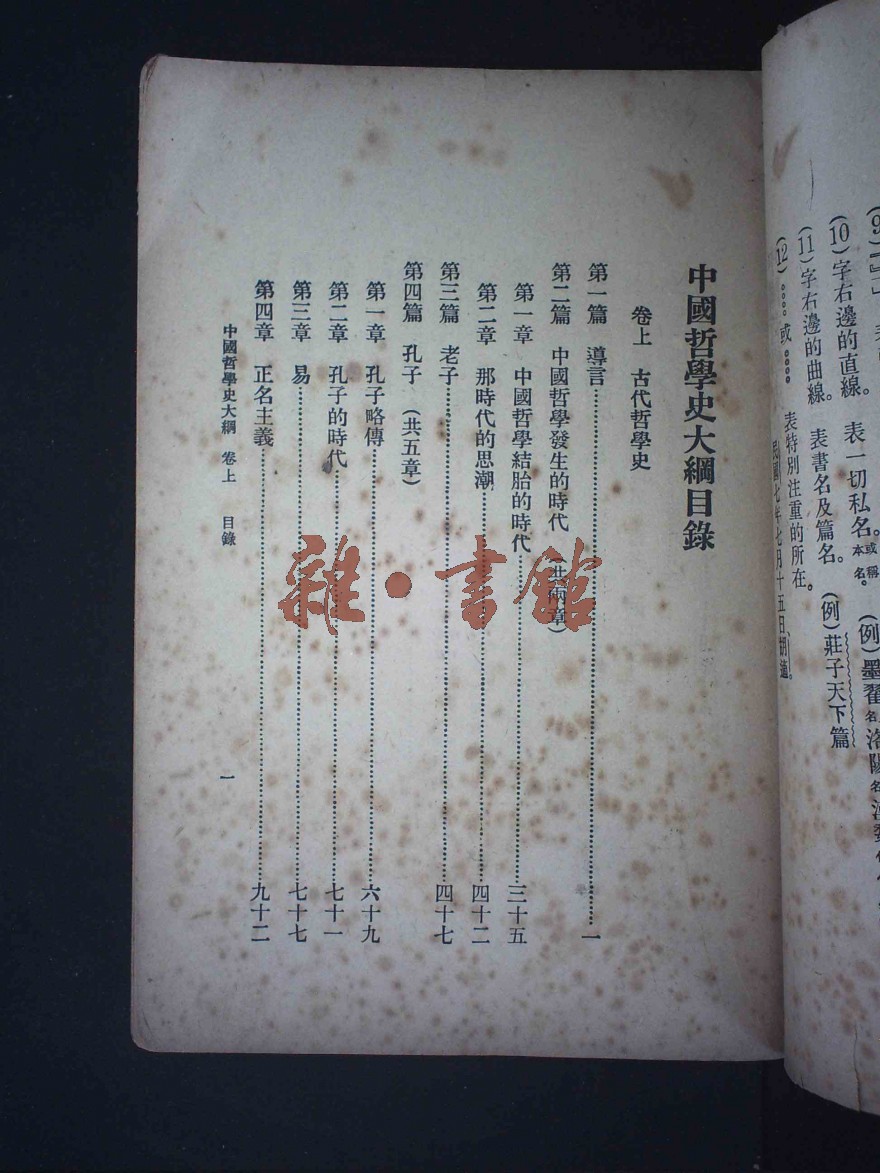 (9)『』「」
(10)字右邊的直線。 表一切私名。或稱本名。 (例)墨翟名洛陽名
(11)字右邊的曲線。 表書名及篇名。 (例)莊子天下篇
(12)。。。。或。。。。 表特別注重的所在。
民國七年七月十五日、胡適。
中國哲學史大綱目錄
卷上 古代哲學史
第一篇 導言……一
第二篇 中國哲學發生的時代 (共兩章)
第一章 中國哲學結胎的時代……三十五
第二章 那時代的思潮……四十二
第三篇 老子……四十七
第四篇 孔子 (共五章)
第一章 孔子略傳……六十九
第二章 孔子的時代……七十一
第三章 易……七十七
第四章 正名主義……九十二
中國哲學史大綱 卷上 目錄
一
雜·書館